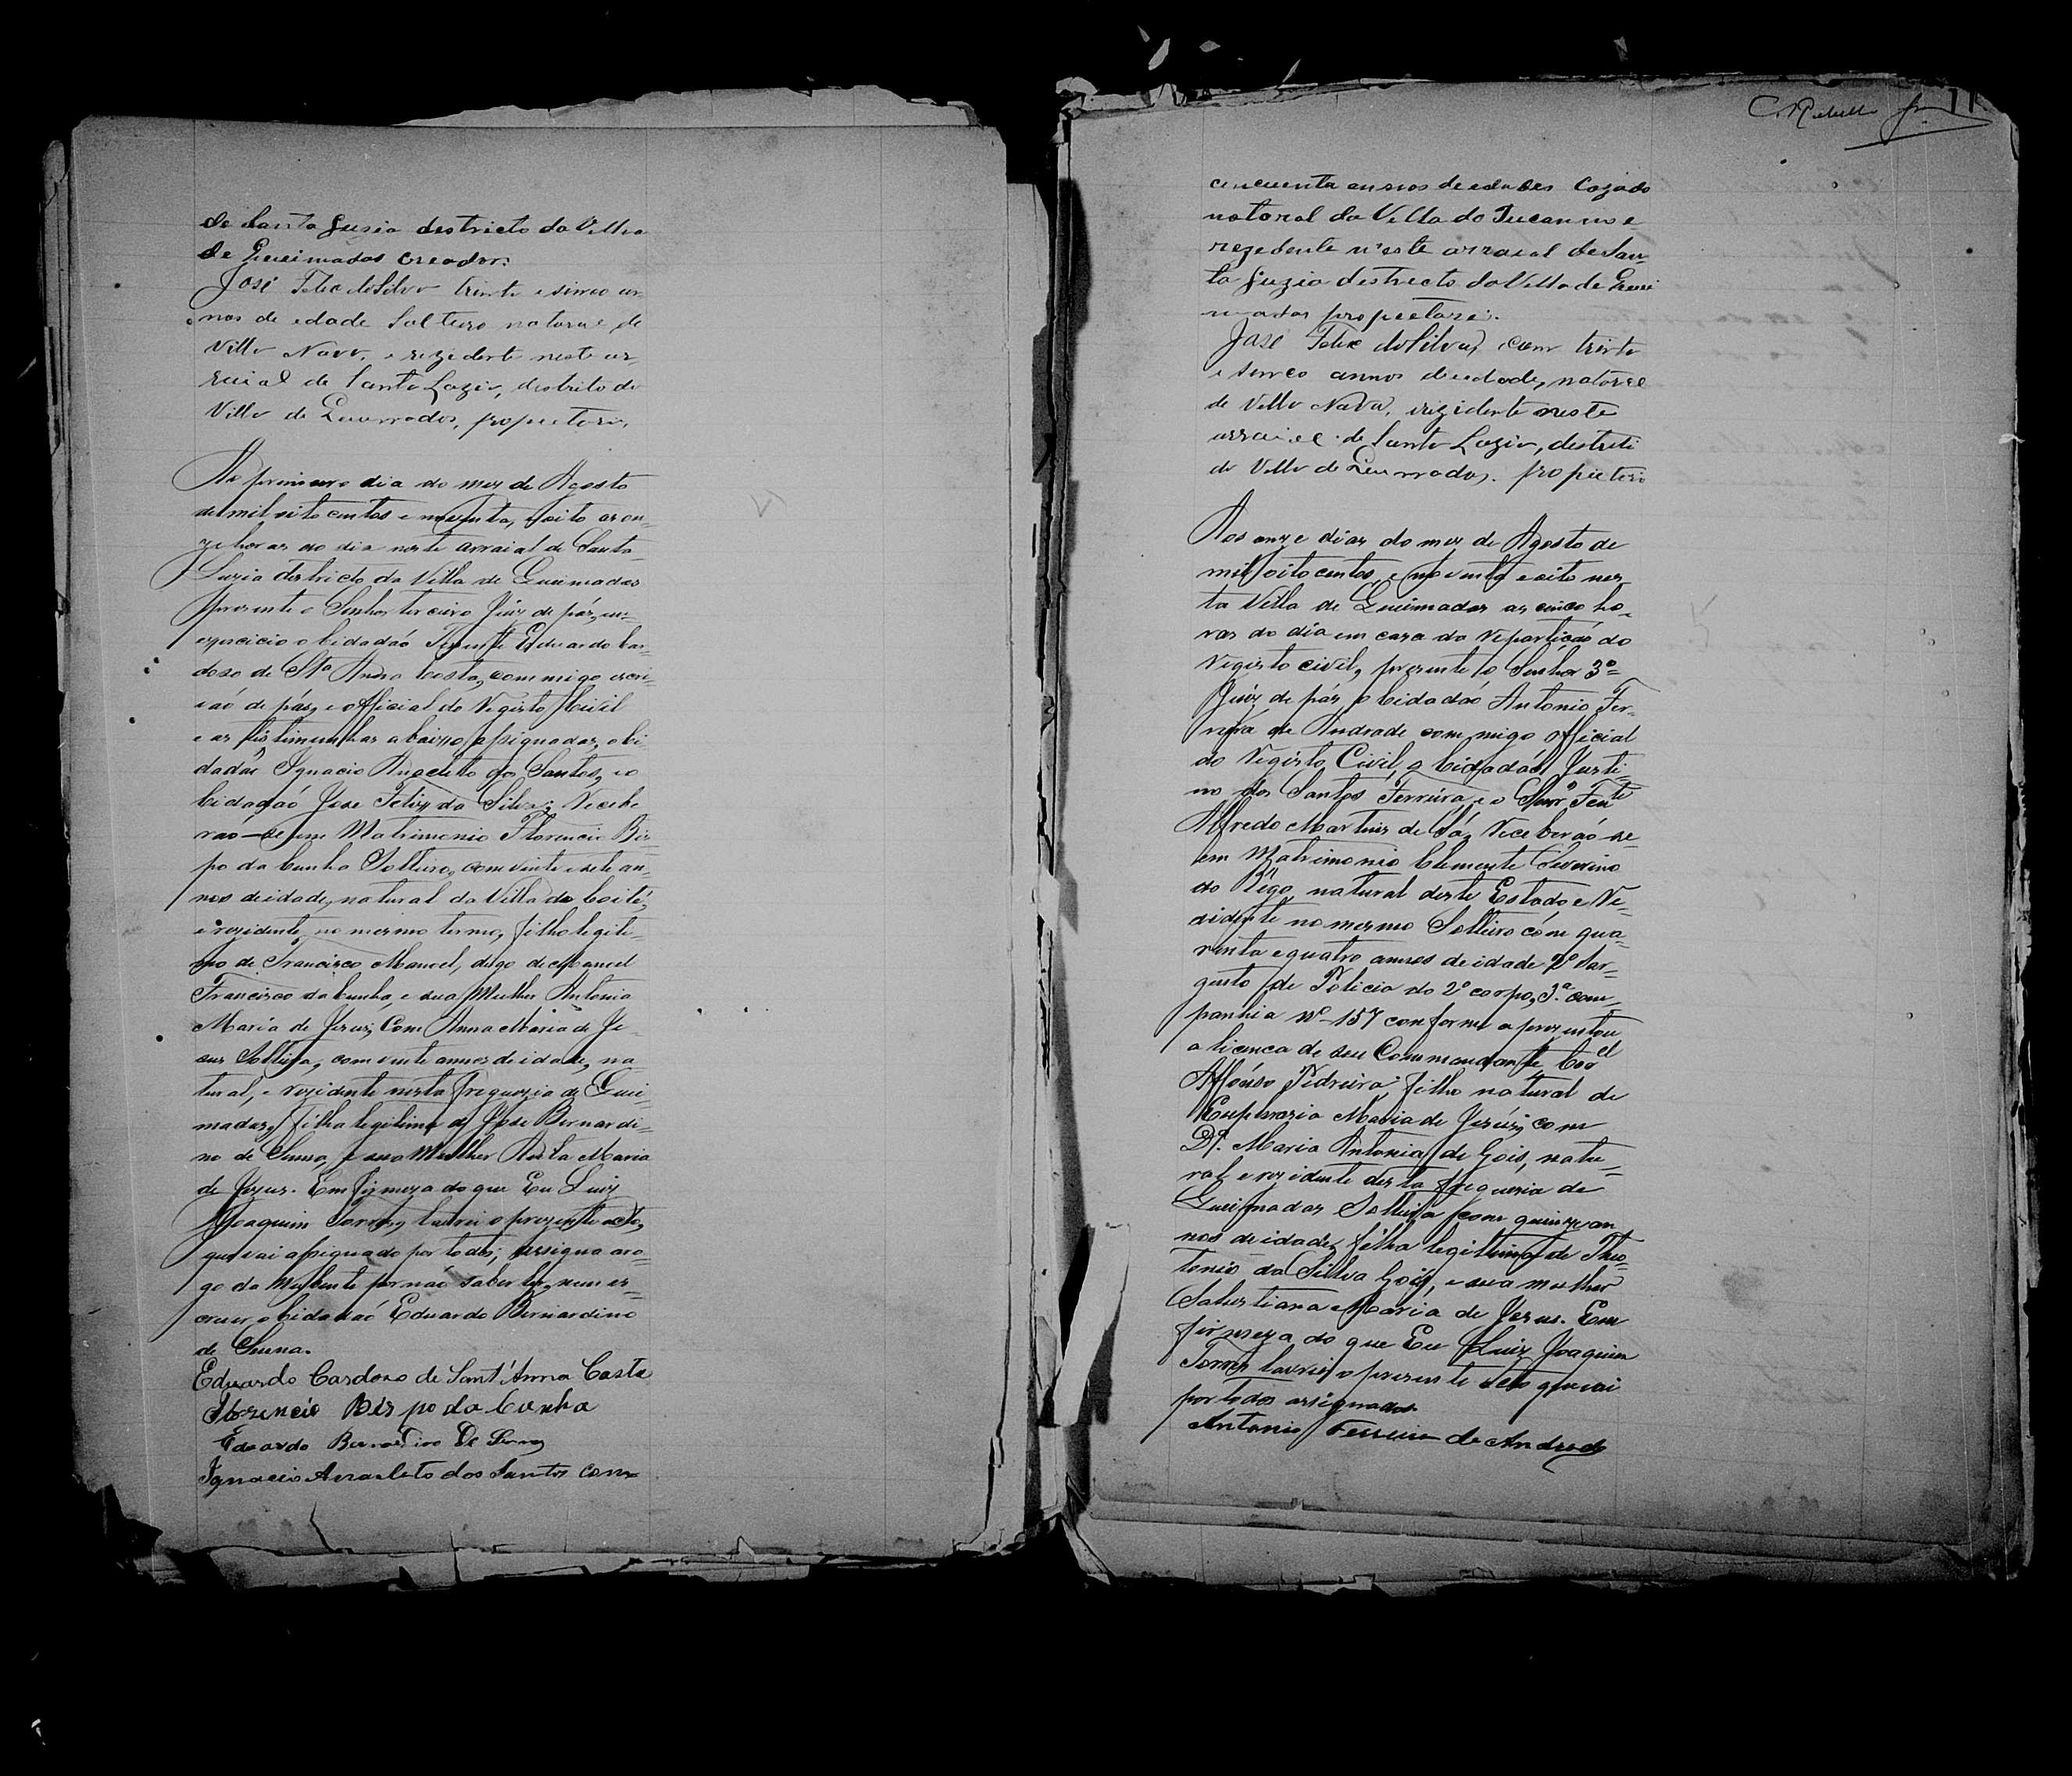 de Santa Luzia destricto da Villa
de Queimados creador.
José Felix da Silva trinta e sinco an-
nos de edade Solteiro natural de
Villa Nova, e rezidente neste ar-
raial de Santa Luzia, destrito da
Villa de Queimados, propietario,
Ao primeiro dia do mez de Agosto
de mil oito centos e noventa, e oito as on-
ze horas do dia neste Arraial de Santa
Luzia destricto da Villa de Queimados
prezente o Senhor terceiro Juiz de páz, em
exercicio o Cidadaó Tenente Eduardo Car-
dozo de Sta Anna Costa, com migo escri-
vaó de páz, e official do Registo Civil
e as tistimunhas abaixo assignadas, o Ci-
dadaõ Ignacio Anacleto dos Santos, e o
Cidadaó Jose Felix da Silva; Recebe
raó-se em Matrimonio Florencio Bis-
po da Cunha Solteiro, com vinte e sete an-
nos de idade, natural da Villa do Coité,
e rezidente no mesmo termo, filho legiti-
mo de Francisco Manoel, digo de Manoel
Francisco da Cunha, e sua Mulher Antonia
Maria de Jezus; Com Anna Maria de Je-
sus Solteira, com vinte annos de idade, na
tural, e rezidente nesta freguezia de Quei-
madas, filha legitima de Jose Bernardi-
no de Senna, e sua Mulher Maria
de Jezus. Em firmeza do que Eu Luiz
Joaquim Torres, lavrei o prezente acto,
que vai assignado por todos; assigna aro-
go da Nubente por naó saber ler, nem es-
crever o Cidadaó Eduardo Bernardino
de Senna.
Eduardo Cardozo de Sant'Anna Costa
Florencio Bispo da Cunha
Eduardo Bernardino De Senna
Ignacio Anacleto dos Santos com
C. Rabello Jr. 11
cincuenta annos de edades Cazado
natoral da Villa do Tucanno e
rezedente n'este arraial de San-
ta Luzia destrecto da Villa de Quei
mados propietario.
José Felix da Silva, com trinta
e sinco annos de edade, natoral
de Villa Nova, rezidente neste
arraial de Santa Luzia, destrito
da Villa de Queimados. propietario
Aos onze dias do mez de Agosto de
mil oito centos, e noventa e oito nes-
ta Villa de Queimados as cinco ho-
ras do dia em caza da Repartiçaó do
Registo civil, prezente o Senhor 3º
Juiz de páz o Cidadaó Antonio Fer-
reira de Andrade com migo Official
do Registo Civil, o Cidadaó Justi-
no dos Santos Ferreira, e o Snr Tente
Alfredo Martins de Sá, Receberaó-se
em Matrimonio Clemente Severino
do Rêgo, natural deste Estado, e Re-
zidente no mesmo Solteiro cóm qua-
renta e quatro annos de idade 2º Sar-
gento de Policia do 2º corpo, 3.ª com-
panhia Nº 157 conforme aprezentou
a licenca de seu Commandante Cor.el
Affónso Pedreira; filho natural de
Euphrazia Maria de Jezús; com
D. Maria Antonia de Gois, natu-
ral e rezidente desta freguezia de
Queimadas Solteira com quinze an
nos de idade, filha legitima de Theo-
tonio da Silva Gois, e sua mulher
Salustiana Maria de Jezus. Em
firmeza do que Eu Luiz Joaquim
Torres lavrei o prezente acto que vai
por todos assignados
Antonio Ferreira de Andrade